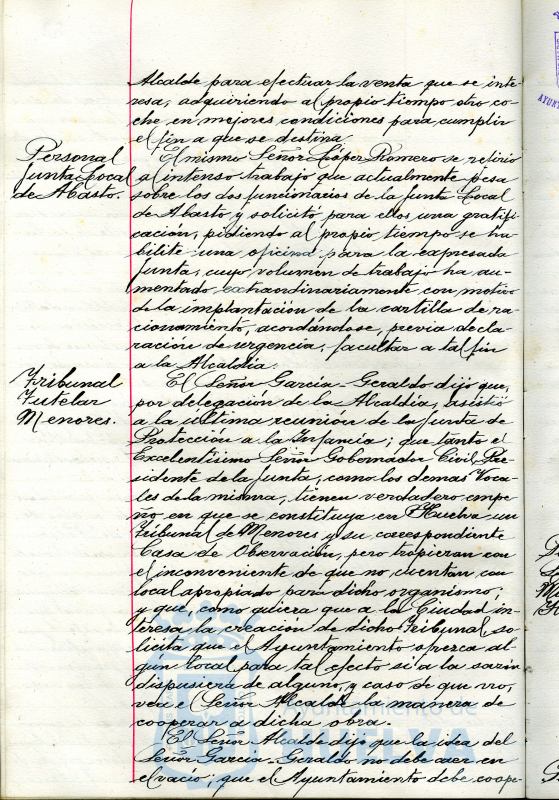 Alcalde para efectuar la venta que se inte-
resa, adquiriendo al propio tiempo otro co-
che en mejores condiciones para cumplir
el fin a que se destina.
Personal
Junta Local
de Abasto.
El mismo Señor Lósper Romero se refirió
al intenso trabajo que actualmente pesa
sobre los dos funcionarios de la Junta Local
de Abasto y solicitó para ellos una gratifi-
cación, pidiendo al propio tiempo se ha-
bilite una oficina para la expresada
Junta, cuyo volumen de trabajo ha au-
mentado extraordinariamente con motivo
de la implantación de la cartilla de ra-
cionamiento, acordándose, previa decla-
ración de urgencia, facultar a tal fin
a la Alcaldía.
Tribunal
Tutelar
Menores.
El Señor García-Geraldo dijo que,
por delegación de la Alcaldía, asistió
a la última reunión de la Junta de
Protección a la Infancia; que tanto el
Excelentísimo Señor Gobernador Civil Pre-
sidente de la Junta, como los demas Voca-
les de la misma, tienen verdadero empe-
ño en que se constituya en Huelva un
Tribunal de Menores y su correspondiente
Casa de Observación, pero tropiezan con
el inconveniente de que no cuentan con
local apropiado para dicho organismo;
y que, como quiera que a la Ciudad in-
teresa la creación de dicho Tribunal, so-
licita que el Ayuntamiento ofrezca al-
gún local para tal efecto si a la sazón
dispusiera de alguno, y caso de que no,
vea el Señor Alcalde la manera de
cooperar a dicha obra.
El Señor Alcalde dijo que la idea del
Señor García-Geraldo no debe caer en
el vacío; que el Ayuntamiento debe coope-
Ayuntamiento de
HUELVA